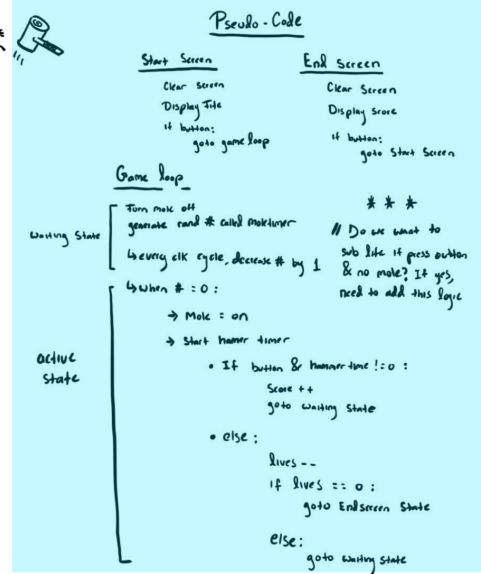 Pseudo-Code
Start Screen
Clear Screen
Display Title
if button:
goto game loop
End Screen
Clear Screen
Display Score
if button:
goto Start Screen
Game loop
Waiting State
Turn mole off
generate rand # called moletimer
↳ every clk cycle, decrease # by 1
* * *
// Do we want to
sub life if press button
& no mole? If yes,
need to add this logic
active
state
↳ when # = 0 :
→ Mole = on
→ Start hamer timer
• If button & hammertime != 0 :
Score ++
goto waiting State
• else :
lives --
if lives == 0 :
goto Endscreen State
else:
goto waiting State